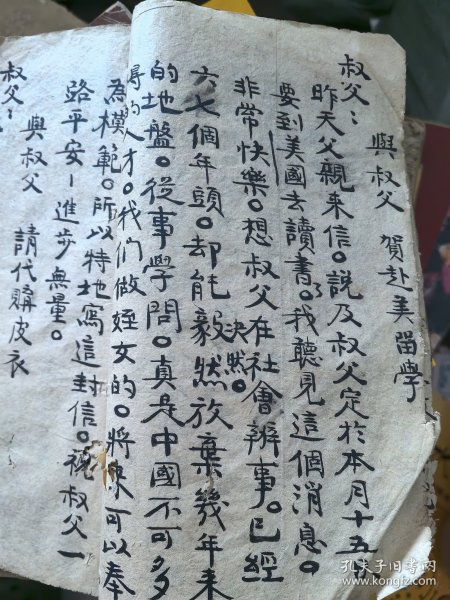 與叔父　賀赴美留學
叔父：
昨天父親来信。說及叔父定於本月十五日
要到美國去讀書了。我聽見這個消息。
非常快樂。想叔父在社會辨事。已經
六七個年頭。却能毅然决然。放棄幾年来
的地盤。從事學問。真是中國不可多
得的人才。我們做姪女的。將來可以奉
為模範。所以特地寫這封信。祝叔父一
路平安－進步無量。
與叔父　請代購皮衣
叔父：
孔夫子旧书网
www.kongfz.com